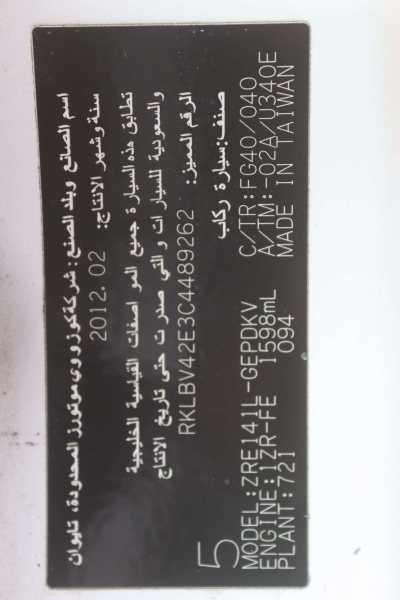 اسم الصانع وبلد الصنع: شركة كوزووي موتورز المحدودة، تايوان
سنة وشهر الانتاج: 2012.02
تطابق هذه السيارة جميع المواصفات القياسية الخليجية
والسعودية للسيارات والتي صدرت حتى تاريخ الانتاج
الرقم المميز: RKLBV42E3C4489262
صنف: سيارة ركاب
5
MODEL:ZRE141L-GEPDKV C/TR:FG40/040
ENGINE:1ZR-FE 1598mL A/TM:-02A/U340E
PLANT:721 094 MADE IN TAIWAN